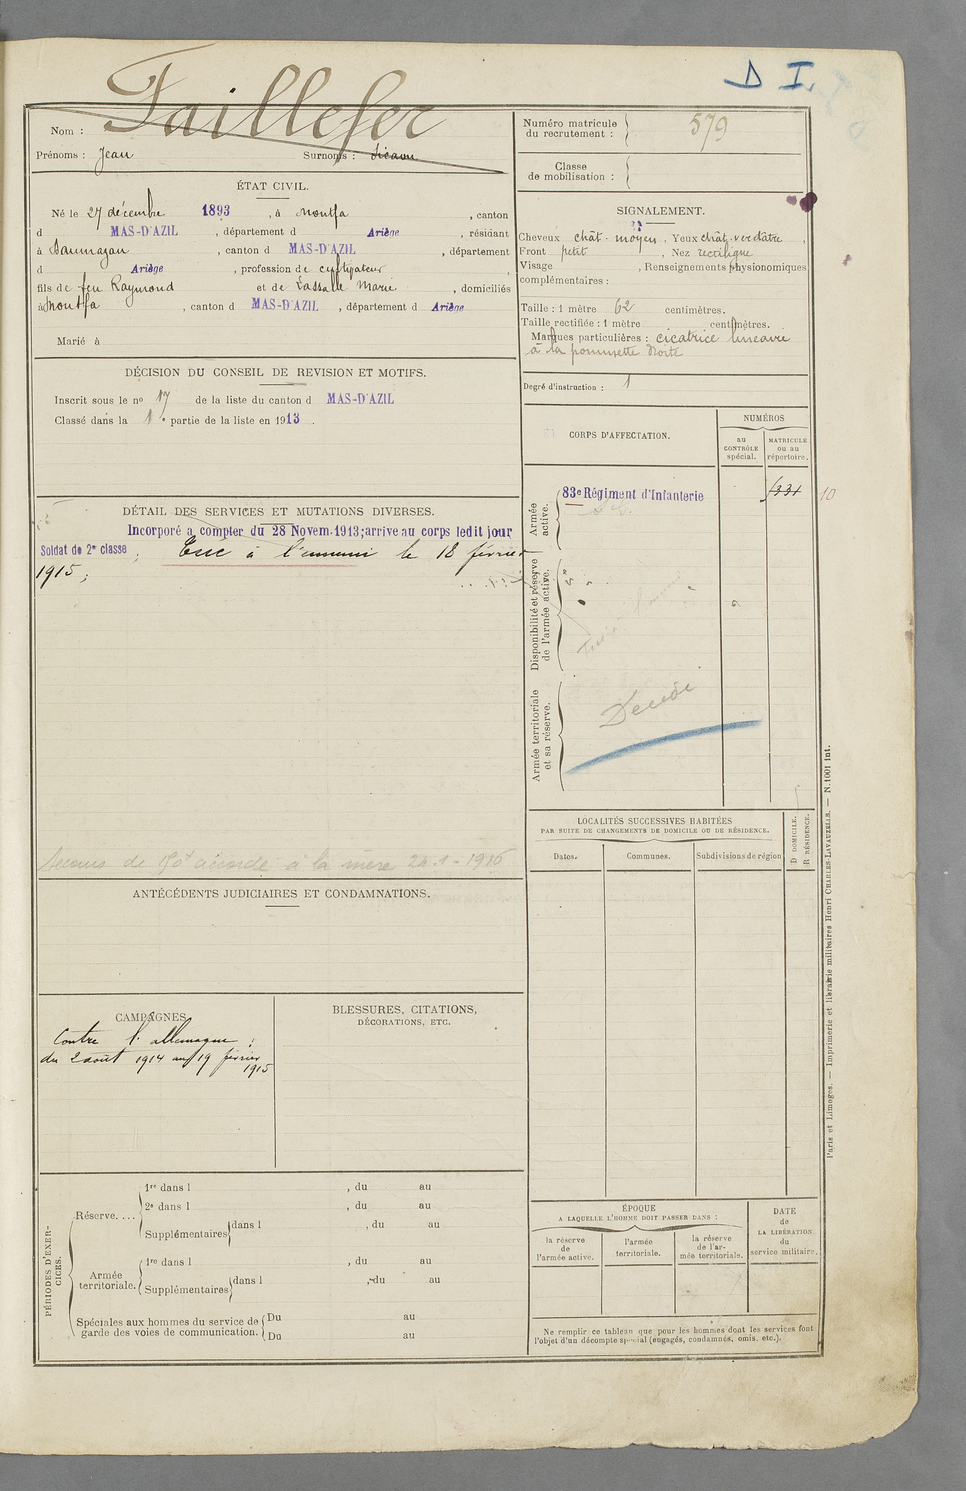 D I.
Taillefer
Nom :
Prénoms : Jean Surnoms : Sicam
Numéro matricule du recrutement : 579
Classe de mobilisation :
ÉTAT CIVIL.
Né le 27 décembre 1893, à Montfa, canton
d MAS-D'AZIL, département d Ariège, résidant
à Daumazan, canton d MAS-D'AZIL, département
d Ariège, profession de cultivateur
fils de feu Raymond et de Lassalle Marie, domiciliés
à Montfa, canton d MAS-D'AZIL, département d Ariège
Marié à
SIGNALEMENT.
Cheveux chât. moyen, Yeux chât. verdâtre,
Front petit, Nez rectiligne
Visage , Renseignements physionomiques
complémentaires :
Taille : 1 mètre 62 centimètres.
Taille rectifiée : 1 mètre centimètres.
Marques particulières : cicatrice lineaire
à la pommette droite
Degré d'instruction : 1
DÉCISION DU CONSEIL DE REVISION ET MOTIFS.
Inscrit sous le no 17 de la liste du canton d MAS-D'AZIL
Classé dans la 1e partie de la liste en 1913.
CORPS D'AFFECTATION.
NUMÉROS
au CONTRÔLE spécial.
MATRICULE ou au répertoire.
Armée active.
83e Régiment d'Infanterie
331
10
Disponibilité et réserve de l'armée active.
Armée territoriale et sa réserve.
Décédé
DÉTAIL DES SERVICES ET MUTATIONS DIVERSES.
Incorporé a compter du 28 Novem. 1913; arrive au corps ledit jour
Soldat de 2me classe; Tué à l'ennemi le 18 février
1915;
Secours de 150f accordé à la mère 24-1-1916
ANTÉCÉDENTS JUDICIAIRES ET CONDAMNATIONS.
CAMPAGNES.
Contre l'allemagne :
du 2 août 1914 au 19 février
1915
BLESSURES, CITATIONS,
DÉCORATIONS, ETC.
LOCALITÉS SUCCESSIVES HABITÉES
PAR SUITE DE CHANGEMENTS DE DOMICILE OU DE RÉSIDENCE.
Dates. Communes. Subdivisions de région
D DOMICILE.
R RÉSIDENCE.
PÉRIODES D'EXERCICES.
Réserve....
1re dans l , du au
2e dans l , du au
Supplémentaires dans l , du au
Armée territoriale.
1re dans l , du au
Supplémentaires dans l , du au
Spéciales aux hommes du service de garde des voies de communication.
Du au
Du au
ÉPOQUE
A LAQUELLE L'HOMME DOIT PASSER DANS :
la réserve de l'armée active.
l'armée territoriale.
la réserve de l'armée territoriale.
DATE de LA LIBÉRATION du service militaire.
Ne remplir ce tableau que pour les hommes dont les services font
l'objet d'un décompte spécial (engagés, condamnés, omis, etc.).
Paris et Limoges. — Imprimerie et librairie militaires Henri CHARLES-LAVAUZELLE. — N. 1001 int.